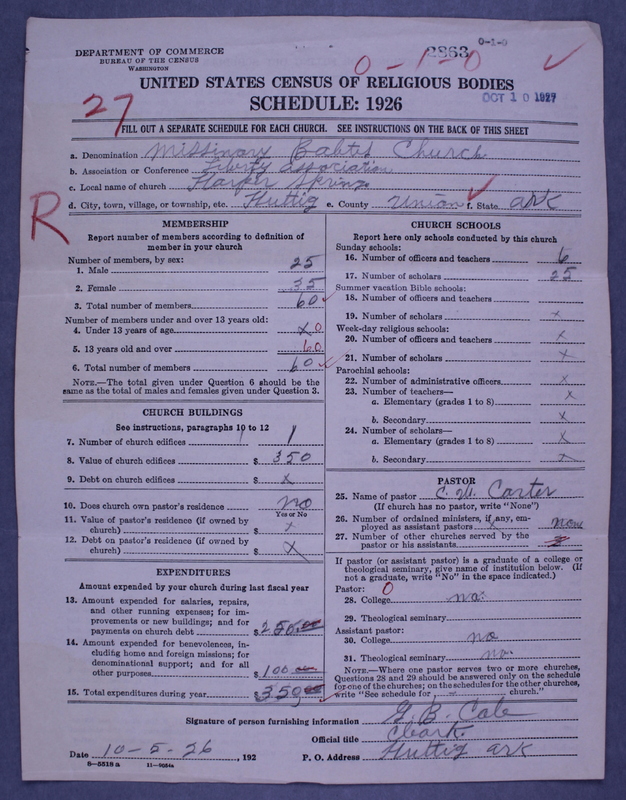 DEPARTMENT OF COMMERCE
BUREAU OF THE CENSUS
WASHINGTON
2863
0-1-0
0-1-0
UNITED STATES CENSUS OF RELIGIOUS BODIES
SCHEDULE: 1926
OCT 10 1927
27
FILL OUT A SEPARATE SCHEDULE FOR EACH CHURCH. SEE INSTRUCTIONS ON THE BACK OF THIS SHEET
a. Denomination Missinary Babtist Church
b. Association or Conference Liberty association
c. Local name of church Harper Springs
d. City, town, village, or township, etc. Huttig e. County Union f. State ark
R
MEMBERSHIP
Report number of members according to definition of
member in your church
Number of members, by sex:
1. Male 25
2. Female 35
3. Total number of members 60
Number of members under and over 13 years old:
4. Under 13 years of age x 0
5. 13 years old and over 60
6. Total number of members 60
NOTE.—The total given under Question 6 should be the
same as the total of males and females given under Question 3.
CHURCH BUILDINGS
See instructions, paragraphs 10 to 12
7. Number of church edifices 1
8. Value of church edifices $ 350
9. Debt on church edifices $ x
10. Does church own pastor's residence? no
Yes or No
11. Value of pastor's residence (if owned by
church) $ x
12. Debt on pastor's residence (if owned by
church) $ x
EXPENDITURES
Amount expended by your church during last fiscal year
13. Amount expended for salaries, repairs,
and other running expenses; for im-
provements or new buildings; and for
payments on church debt $ 250.00
14. Amount expended for benevolences, in-
cluding home and foreign missions; for
denominational support; and for all
other purposes $ 100.00
15. Total expenditures during year $ 350.00
CHURCH SCHOOLS
Report here only schools conducted by this church
Sunday schools:
16. Number of officers and teachers 6
17. Number of scholars 25
Summer vacation Bible schools:
18. Number of officers and teachers
19. Number of scholars x
Week-day religious schools:
20. Number of officers and teachers x
21. Number of scholars x
Parochial schools:
22. Number of administrative officers x
23. Number of teachers—
a. Elementary (grades 1 to 8) x
b. Secondary x
24. Number of scholars—
a. Elementary (grades 1 to 8) x
b. Secondary x
PASTOR
25. Name of pastor C. W. Carter
(If church has no pastor, write "None")
26. Number of ordained ministers, if any, em-
ployed as assistant pastors none
27. Number of other churches served by the
pastor or his assistants
If pastor (or assistant pastor) is a graduate of a college or
theological seminary, give name of institution below. (If
not a graduate, write "No" in the space indicated.)
Pastor: 0
28. College no.
29. Theological seminary
Assistant pastor:
30. College no
31. Theological seminary no.
NOTE.—Where one pastor serves two or more churches,
Questions 28 and 29 should be answered only on the schedule
for one of the churches; on the schedules for the other churches,
write "See schedule for church."
Signature of person furnishing information G. B. Cole
Official title Cleark
Date 10-5-26, 192 P. O. Address Huttig ark
8—5518 a 11—9054a